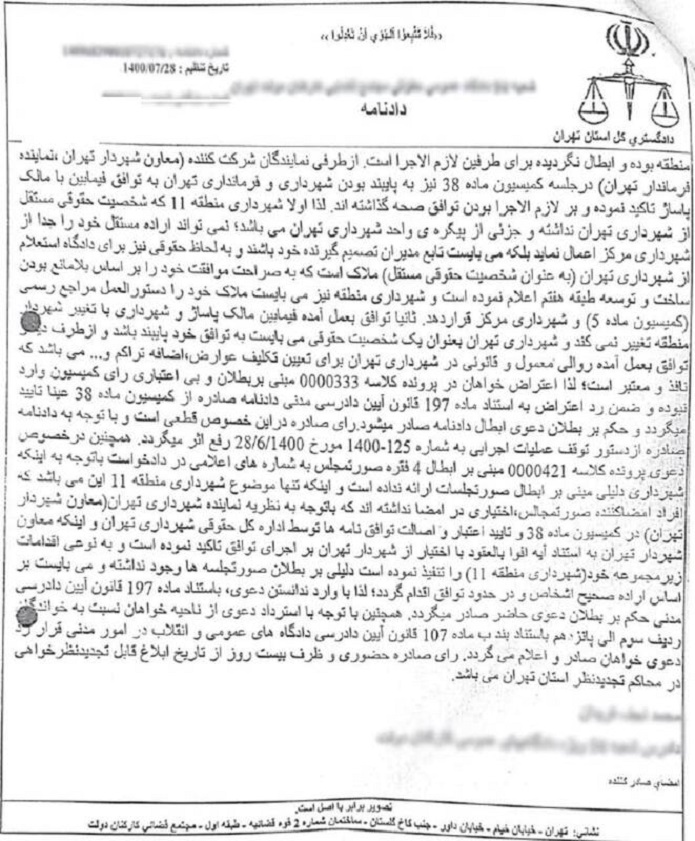 «فَلا تَتَّبِعُوا الْهَوَى أَنْ تَعْدِلُوا»
تاریخ تنظیم : 1400/07/28
دادنامه
دادگستری کل استان تهران
منطقه بوده و ابطال نگردیده برای طرفین لازم الاجرا است. ازطرفی نمایندگان شرکت کننده (معاون شهردار تهران ،نماینده
فرماندار تهران) درجلسه کمیسیون ماده 38 نیز به پایبند بودن شهرداری و فرمانداری تهران به توافق فیمابین با مالک
پاساژ تاکید نموده و بر لازم الاجرا بودن توافق صحه گذاشته اند. لذا اولا شهرداری منطقه 11 که شخصیت حقوقی مستقل
از شهرداری تهران نداشته و جزئی از پیکره ی واحد شهرداری تهران می باشد؛ نمی تواند اراده مستقل خود را جدا از
شهرداری مرکز اعمال نماید بلکه می بایست تابع مدیران تصمیم گیرنده خود باشند و به لحاظ حقوقی نیز برای دادگاه استعلام
از شهرداری تهران (به عنوان شخصیت حقوقی مستقل) ملاک است که به صراحت موافقت خود را بر اساس بلامانع بودن
ساخت و توسعه طبقه هفتم اعلام نموده است و شهرداری منطقه نیز می بایست ملاک خود را دستورالعمل مراجع رسمی
(کمیسیون ماده 5) و شهرداری مرکز قراردهد. ثانیا توافق بعمل آمده فیمابین مالک پاساژ و شهرداری با تغییر شهردار
منطقه تغییر نمی کند و شهرداری تهران بعنوان یک شخصیت حقوقی می بایست به توافق خود پایبند باشد و ازطرف
توافق بعمل آمده روالی معمول و قانونی در شهرداری تهران برای تعیین تکلیف عوارض،اضافه تراکم و... می باشد که
نافذ و معتبر است؛ لذا اعتراض خواهان در پرونده کلاسه 0000333 مبنی بربطلان و بی اعتباری رای کمیسیون وارد
نبوده و ضمن رد اعتراض به استناد ماده 197 قانون آیین دادرسی مدنی دادنامه صادره از کمیسیون ماده 38 عینا تایید
میگردد و حکم بر بطلان دعوی ابطال دادنامه صادر میشود.رای صادره دراین خصوص قطعی است و با توجه به دادنامه
صادره ازدستور توقف عملیات اجرایی به شماره 125-1400 مورخ 28/6/1400 رفع اثر میگردد. همچنین درخصوص
دعوی پرونده کلاسه 0000421 مبنی بر ابطال 4 فقره صورتمجلس به شماره های اعلامی در دادخواست باتوجه به اینکه
شهرداری دلیلی مبنی بر ابطال صورتجلسات ارائه نداده است و اینکه تنها موضوع شهرداری منطقه 11 این می باشد که
افراد امضاکننده صورتمجالس،اختیاری در امضا نداشته اند که باتوجه به نظریه نماینده شهرداری تهران(معاون شهردار
تهران) در کمیسیون ماده 38 و تایید اعتبار و اصالت توافق نامه ها توسط اداره کل حقوقی شهرداری تهران و اینکه معاون
شهردار تهران به استناد آیه افوا بالعقود با اختیار از شهردار تهران بر اجرای توافق تاکید نموده است و به نوعی اقدامات
زیرمجموعه خود(شهرداری منطقه 11) را تنفیذ نموده است دلیلی بر بطلان صورتجلسه ها وجود نداشته و می بایست بر
اساس اراده صحیح اشخاص و در حدود توافق اقدام گردد؛ لذا با وارد ندانستن دعوی، باستناد ماده 197 قانون آیین دادرسی
مدنی حکم بر بطلان دعوی حاضر صادر میگردد. همچنین با توجه با استرداد دعوی از ناحیه خواهان نسبت به خواندگان
ردیف سوم الی پانزدهم باستناد بند ب ماده 107 قانون آیین دادرسی دادگاه های عمومی و انقلاب در امور مدنی قرار رد
دعوی خواهان صادر و اعلام می گردد. رای صادره حضوری و ظرف بیست روز از تاریخ ابلاغ قابل تجدیدنظرخواهی
در محاکم تجدیدنظر استان تهران می باشد.
امضای صادر کننده
تصویر برابر با اصل است.
نشانی: تهران - خیابان خیام - خیابان داور - جنب کاخ گلستان - ساختمان شماره 2 قوه قضائیه - طبقه اول - مجتمع قضائی کارکنان دولت